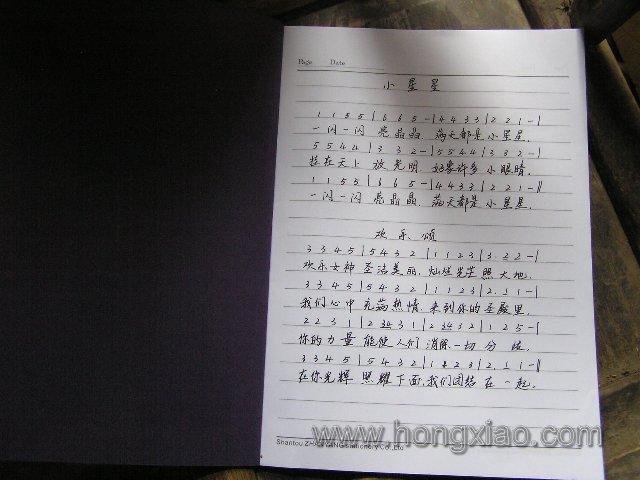 Page Date
小星星
1 1 5 5 | 6 6 5 - | 4 4 3 3 | 2 2 1 - |
一闪一闪 亮晶晶, 满天都是小星星,
5 5 4 4 | 3 3 2 - | 5 5 4 4 | 3 3 2 - |
挂在天上 放光明, 好象许多小眼睛,
1 1 5 5 | 6 6 5 - | 4 4 3 3 | 2 2 1 - ||
一闪一闪 亮晶晶, 满天都是小星星.
欢乐颂
3 3 4 5 | 5 4 3 2 | 1 1 2 3 | 3. 2 2 - |
欢乐女神 圣洁美丽, 灿烂光芒照大地,
3 3 4 5 | 5 4 3 2 | 1 1 2 3 | 2. 1 1 - |
我们心中 充满热情, 来到你的圣殿里.
2 2 3 1 | 2 34 3 1 | 2 34 3 2 | 1 2 5 - |
你的力量 能使人们 消除一切分歧,
3 3 4 5 | 5 4 3 2 | 1 1 2 3 | 2. 1 1 - ||
在你光辉 照耀下面, 我们团结在一起.
Shantou Stationery Co.,Ltd
www.hongxiao.com